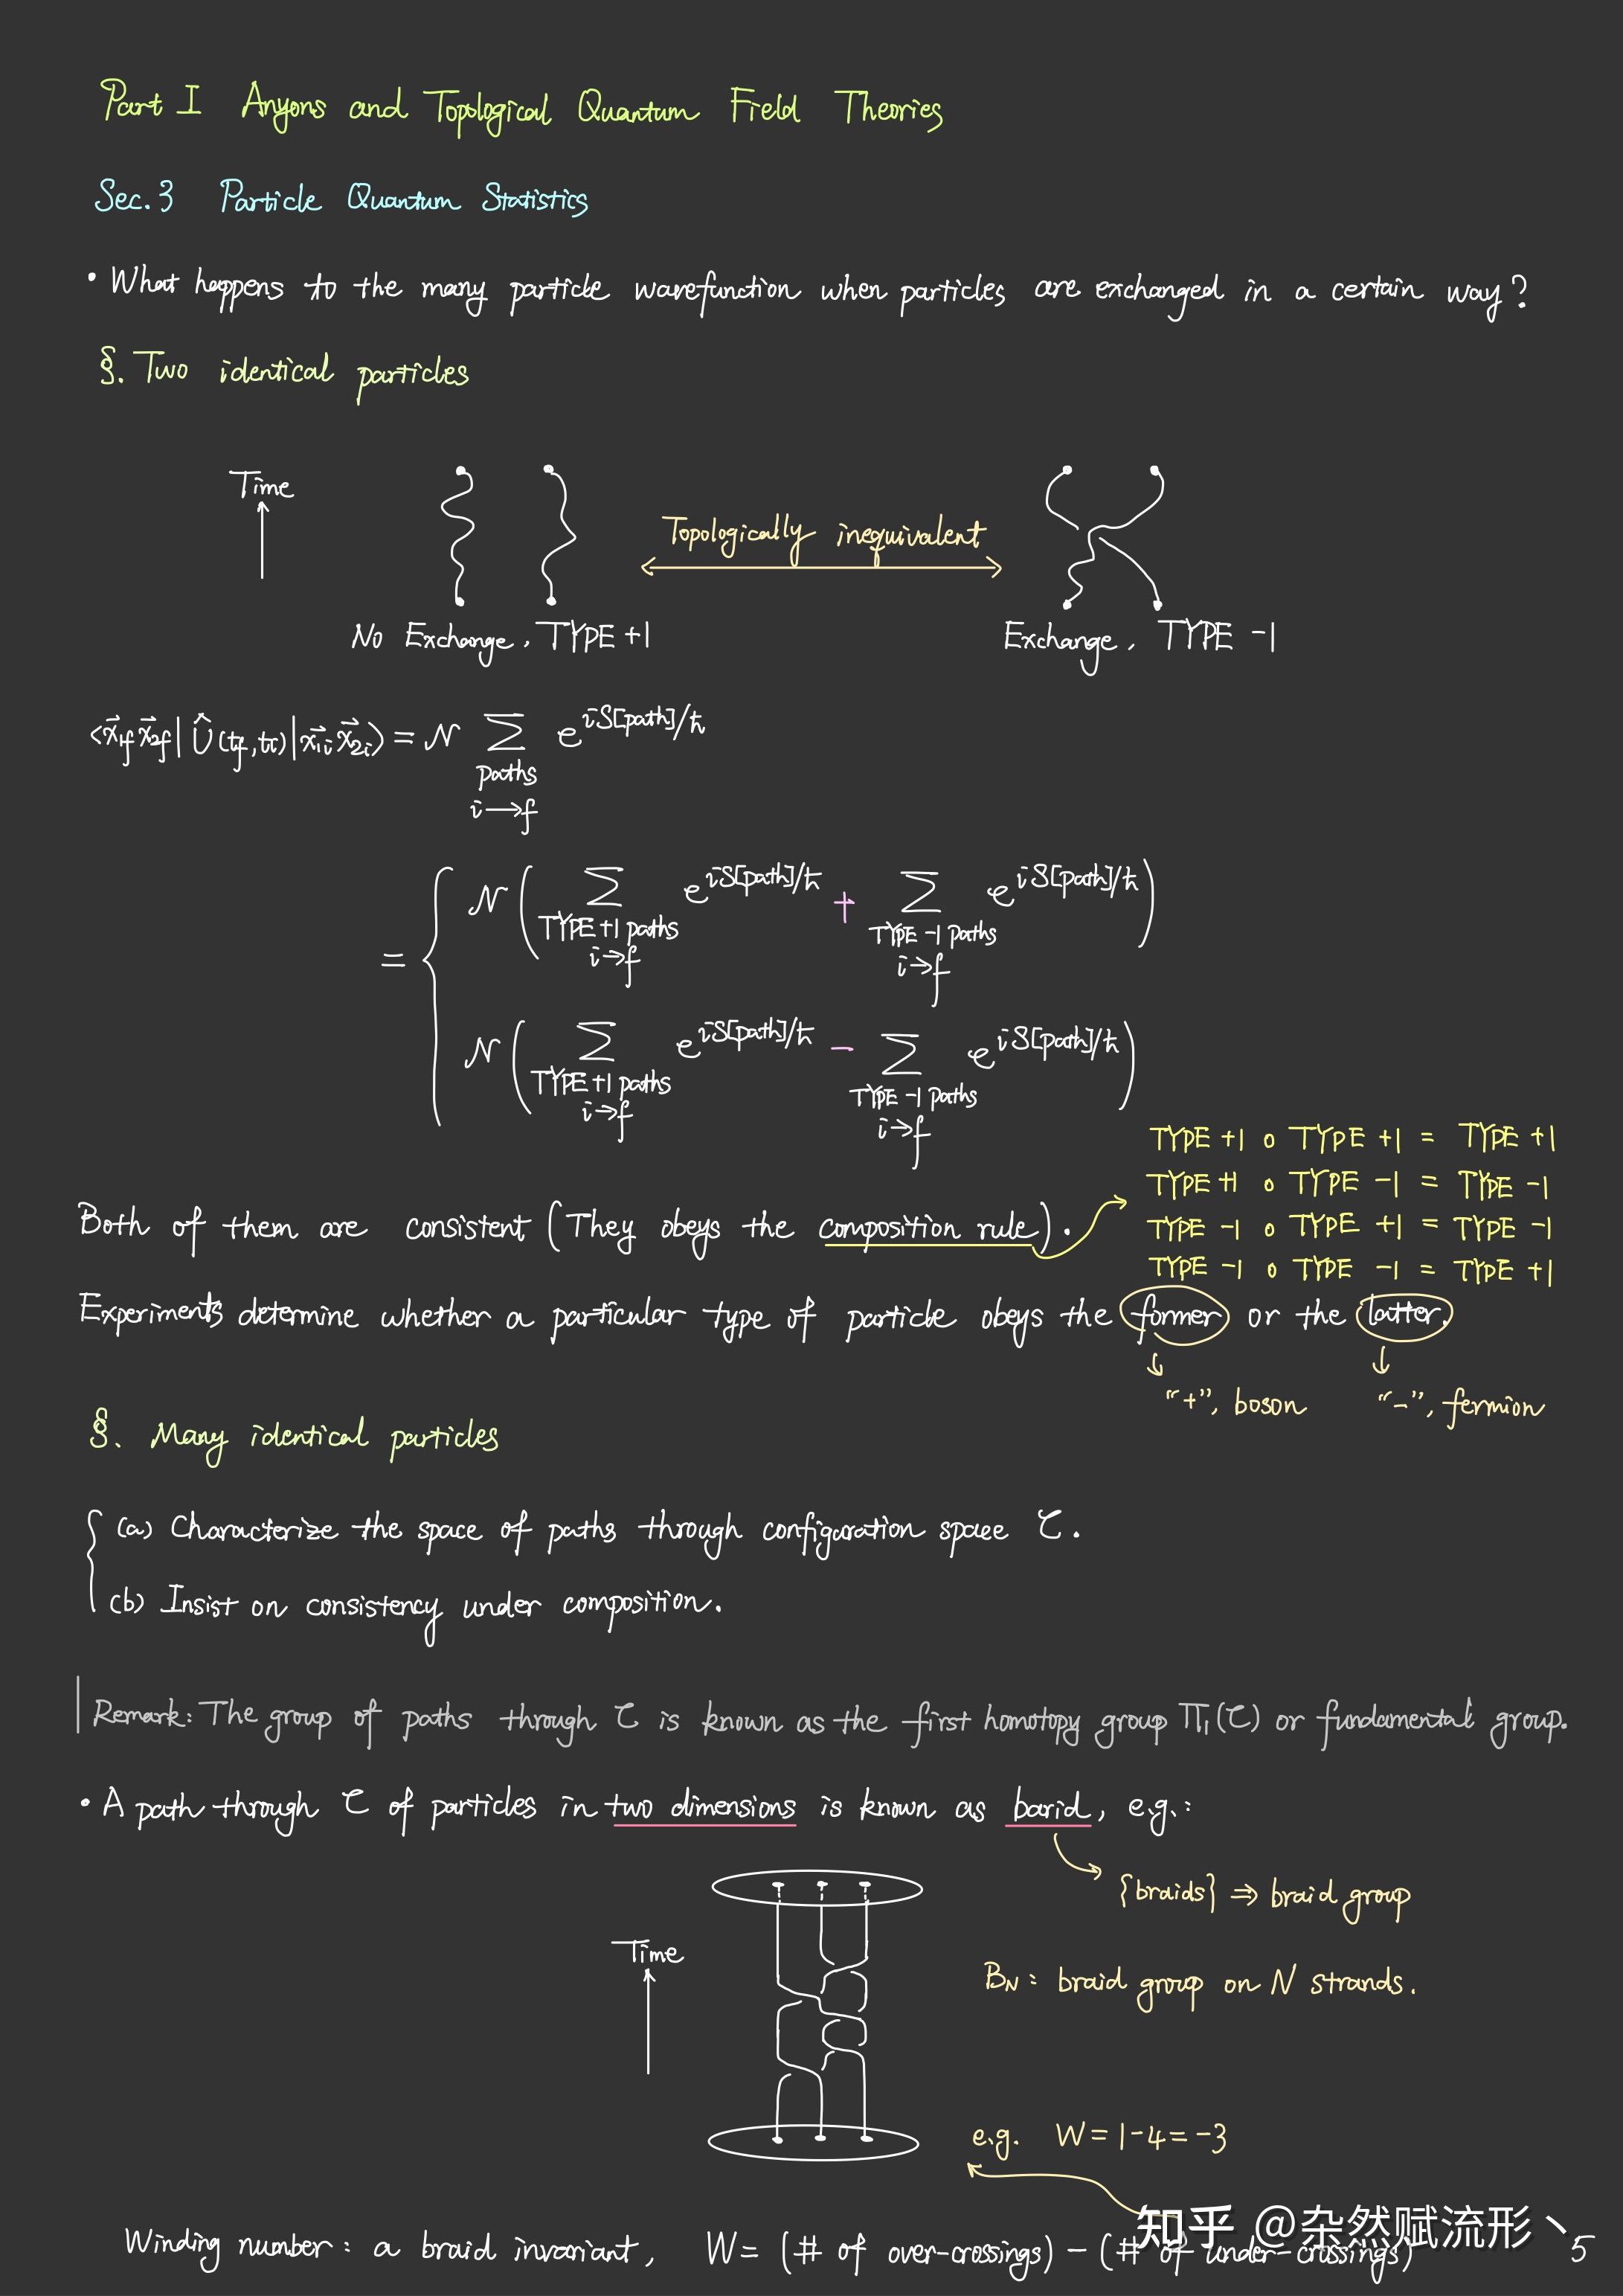 Part I Anyons and Topological Quantum Field Theories
Sec.3 Particle Quantum Statistics
• What happens to the many particle wavefunction when particles are exchanged in a certain way?
§. Two identical particles
Time
Topologically inequivalent
No Exchange, TYPE +1
Exchange, TYPE -1
<x⃗1f x⃗2f| Û(tf,ti) |x⃗1i x⃗2i> = 𝒩 Σ e^{iS[path]/ħ}
paths
i→f
= { 𝒩 ( Σ e^{iS[path]/ħ} + Σ e^{iS[path]/ħ} )
TYPE +1 paths TYPE -1 paths
i→f i→f
𝒩 ( Σ e^{iS[path]/ħ} - Σ e^{iS[path]/ħ} )
TYPE +1 paths TYPE -1 paths
i→f i→f
TYPE +1 ∘ TYPE +1 = TYPE +1
TYPE +1 ∘ TYPE -1 = TYPE -1
TYPE -1 ∘ TYPE +1 = TYPE -1
TYPE -1 ∘ TYPE -1 = TYPE +1
Both of them are consistent (They obeys the composition rule).
Experiments determine whether a particular type of particle obeys the former or the latter.
"+", boson "-", fermion
§. Many identical particles
(a) Characterize the space of paths through configuration space 𝒞.
(b) Insist on consistency under composition.
Remark: The group of paths through 𝒞 is known as the first homotopy group Π₁(𝒞) or fundamental group.
• A path through 𝒞 of particles in two dimensions is known as barid, e.g.:
{braids} ⇒ braid group
Time
B_N : braid group on N strands.
e.g. W = 1-4 = -3
Winding number: a braid invariant, W = (# of over-crossings) - (# of under-crossings)
知乎 @杂然赋流形丶
5